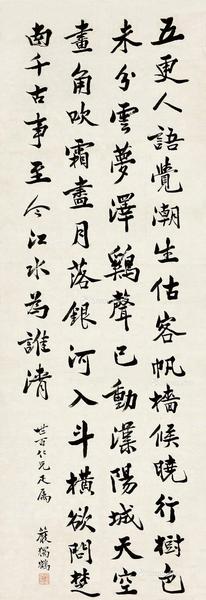 五更人語覺潮生估客帆檣候曉行樹色
未分雲夢澤鷄聲已動漢陽城天空
畫角吹霜盡月落銀河入斗橫欲問楚
南千古事至今江水為誰清
世百仁兄疋屬
嚴獨鶴